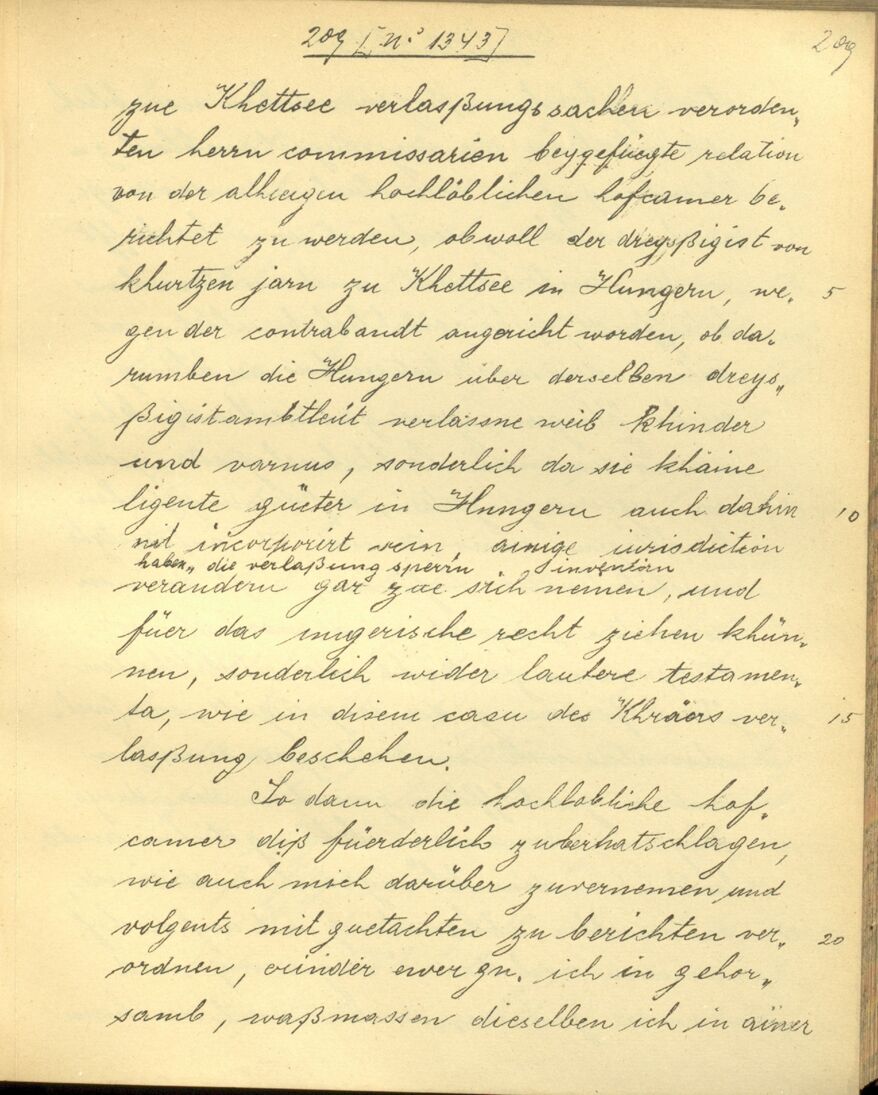 209 [N.º 1343]
209
züe Khettsee verlasßungssachen verorden„
ten herrn commissarien beygefüegte relation
von der alhieigen hochlöblichen hofcamer be„
richtet zu werden, obwoll der dreysßigist von
khurtzen jarn zu Khettsee in Hungern, we„ 5
gen der contrabandt angericht worden, ob da„
rumben die Hungern über derselben dreys„
ßigistambtleüt verlassne weib khinder
und varnus, sonderlich da sie khäine
ligente güeter in Hungern auch dahin 10
nit incorporirt sein, ainige iurisdiction
haben„ die verlaßung sperrn inventirn
verandern gar züe sich nemen, und
füer das ungerische recht ziehen khün„
nen, sonderlich wider lautere testamen„
ta, wie in disem casu des Khräers ver„ 15
lasßung beschehen.
So dann die hochlobliche hof„
camer diß füerderlich zuberhatschlagen,
wie auch mich darüber zuvernemen und
volgents mit guetachten zu berichten ver„ 20
ordnen, erinder ewer gn. ich in gehor„
samb, waßmassen dieselben ich in ainer